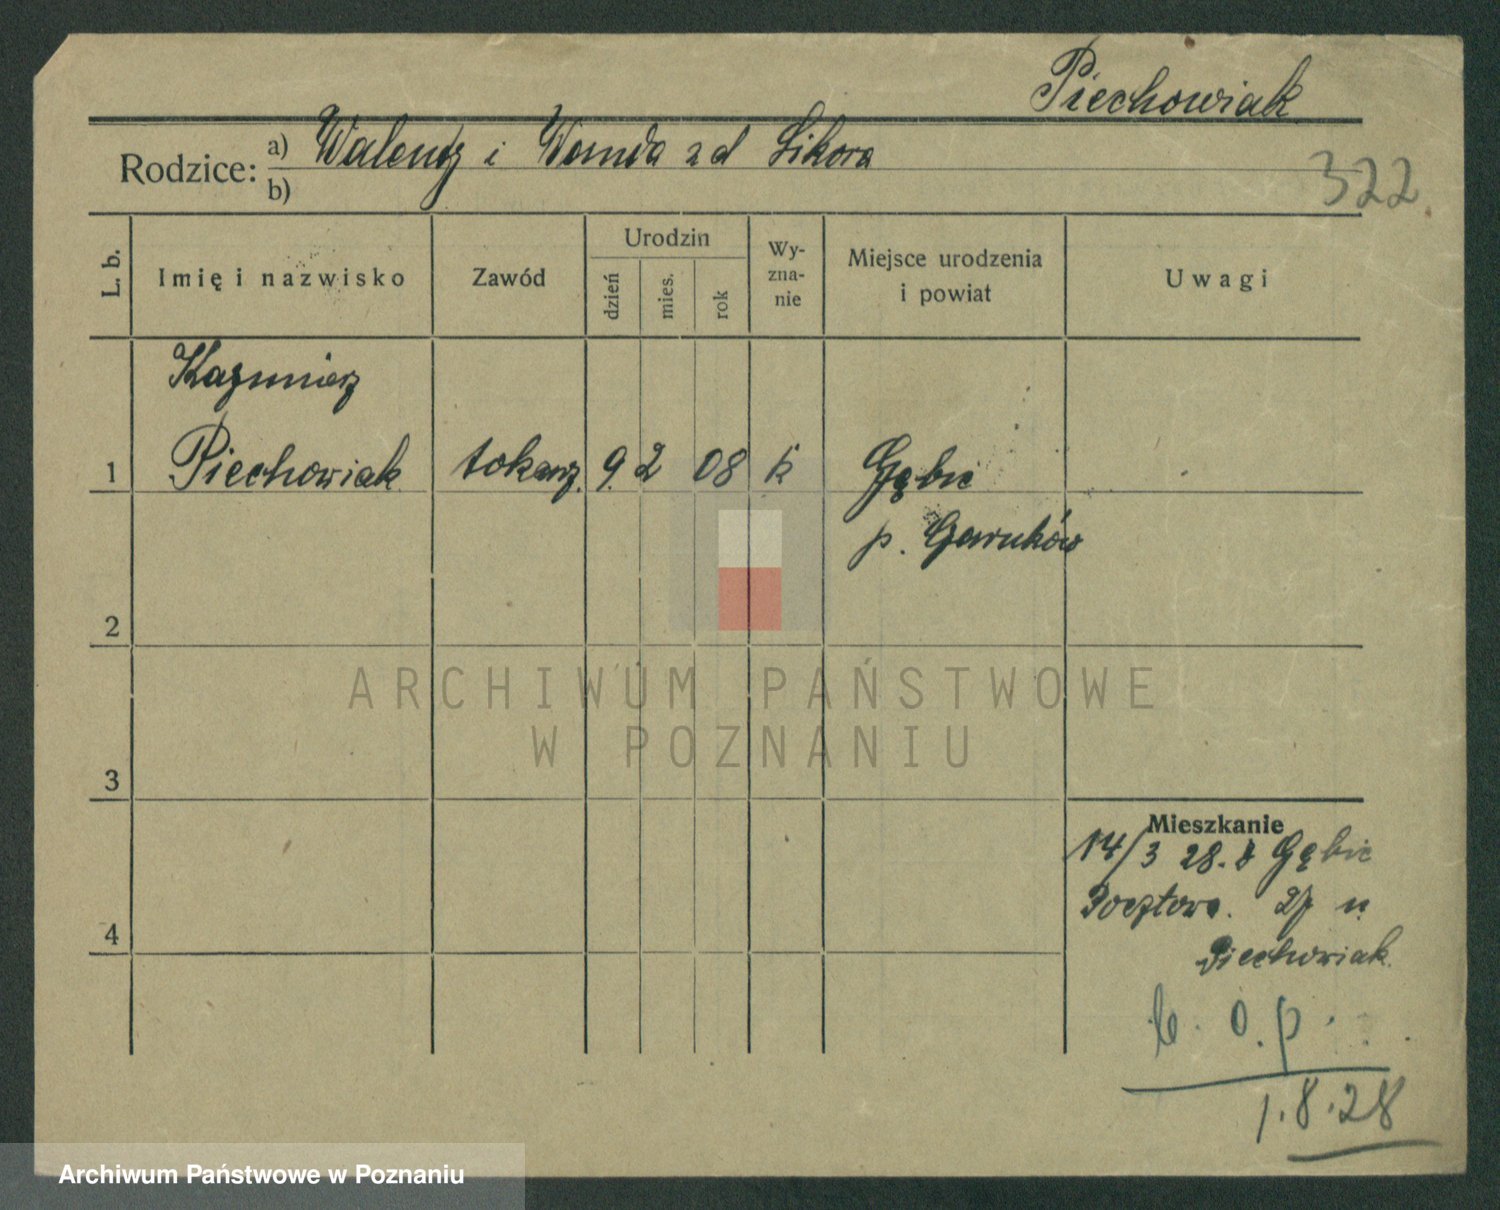 Piechowiak
Rodzice: a) Walenty i Wanda zd Sikora
b)
322
L. b.
Imię i nazwisko
Zawód
Urodzin
dzień
mies.
rok
Wy-
zna-
nie
Miejsce urodzenia
i powiat
Uwagi
Kazimierz
1 Piechowiak tokarz. 9. 2 08 k Gębic
p. Czarnków
2
3
4
ARCHIWUM PAŃSTWOWE
W POZNANIU
Mieszkanie
14/3 28. z Gębic
Pocztowa. 27 u
Piechowiak.
o. p.
1.8.28
Archiwum Państwowe w Poznaniu